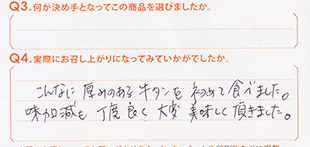 Q3.何が決め手となってこの商品を選びましたか。
Q4.実際にお召し上がりになってみていかがでしたか。
こんなに厚みのある牛タンを初めて食べました。
味加減も丁度良く大変美味しく頂きました。